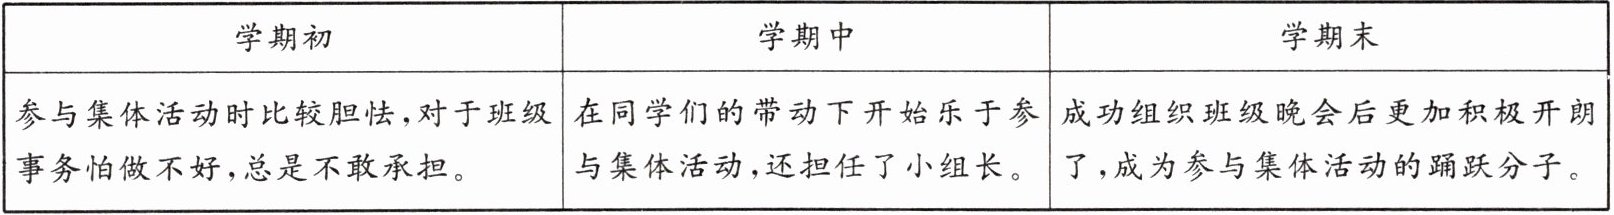 学期初
学期中
学期末
参与集体活动时比较胆怯,对于班级
事务怕做不好,总是不敢承担。
在同学们的带动下开始乐于参
与集体活动,还担任了小组长。
成功组织班级晚会后更加积极开朗
了,成为参与集体活动的踊跃分子。